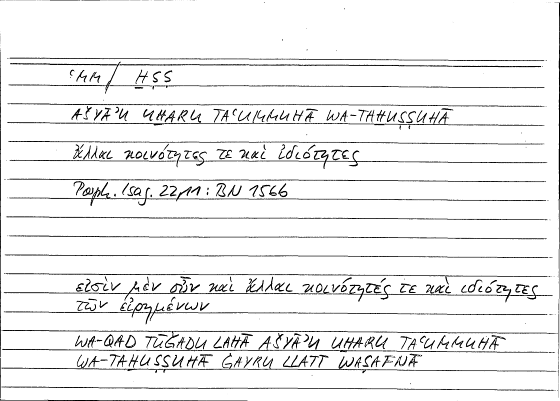 ʿMM / ḪṢṢ
AŠYĀʾU UḪARU TAʿUMMUHĀ WA-TAḪUṢṢUHĀ
ἄλλαι κοινότητες τε καὶ ἰδιότητες
Porph. Isag. 22,11: BN 1566
εἰσὶν μὲν οὖν καὶ ἄλλαι κοινότητές τε καὶ ἰδιότητες
τῶν εἰρημένων
WA-QAD TŪǦADU LAHĀ AŠYĀʾU UḪARU TAʿUMMUHĀ
WA-TAḪUṢṢUHĀ ĠAYRU LLATĪ WAṢAFNĀ